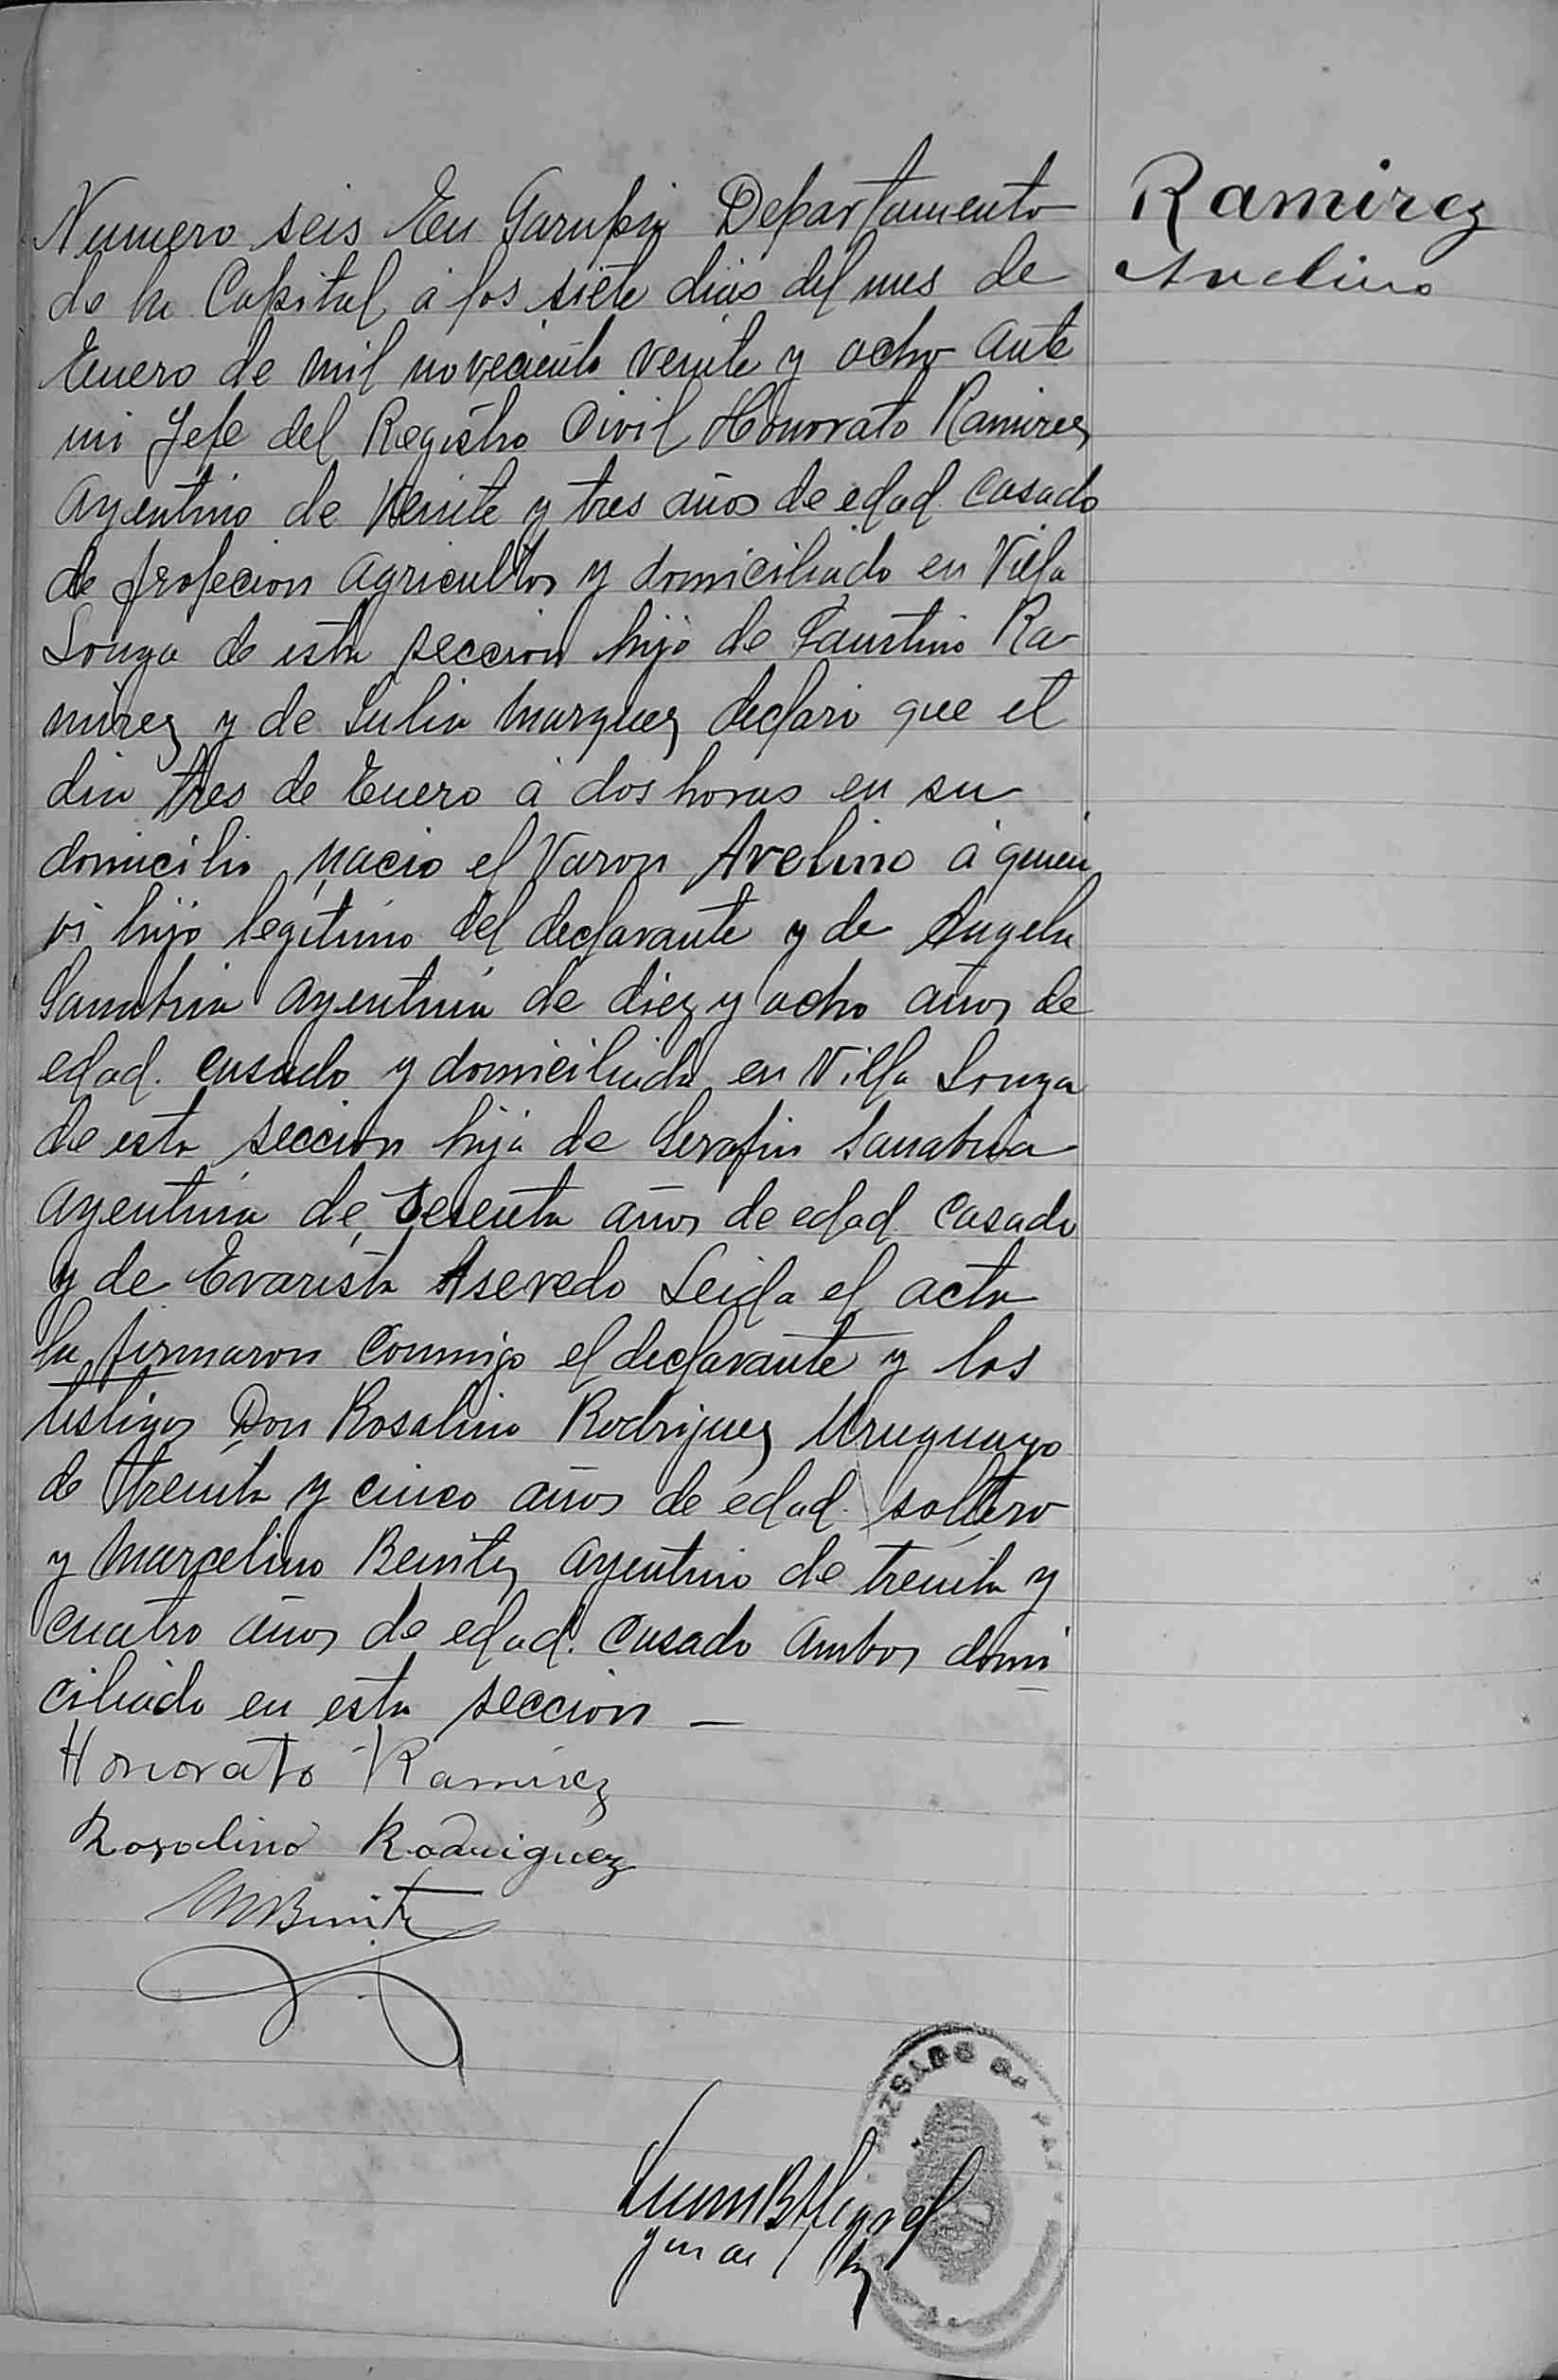 Ramirez
Avelino
Numero seis En Garupá Departamento
de la Capital á los siete dias del mes de
Enero de mil novecientos veinte y ocho ante
mi Jefe del Registro Civil Honorato Ramirez
Argentino de veinte y tres años de edad casado
de profecion agricultor y domiciliado en Villa
Longa de esta seccion hijo de Faustino Ra
mirez y de Julia Marquez declaró que el
dia tres de Enero á dos horas en su
domicilio nacio el Varon Avelino á quien
vi hijo legitimo del declarante y de Angela
Sanabria argentina de diez y ocho años de
edad. casado y domiciliada en Villa Longa
de esta seccion hija de Serafin Sanabria
argentina de sesenta años de edad casado
y de Evarista Asevedo Leida el acta
la firmaron conmigo el declarante y los
testigos Don Rosalino Rodriguez Uruguayo
de treinta y cinco años de edad. soltero
y Marcelino Benitez argentino de treinta y
cuatro años de edad. casado ambos domi
ciliado en esta seccion —
Honorato Ramirez
Rosalino Rodriguez
MBenitez
JUZGADO DE PAZ